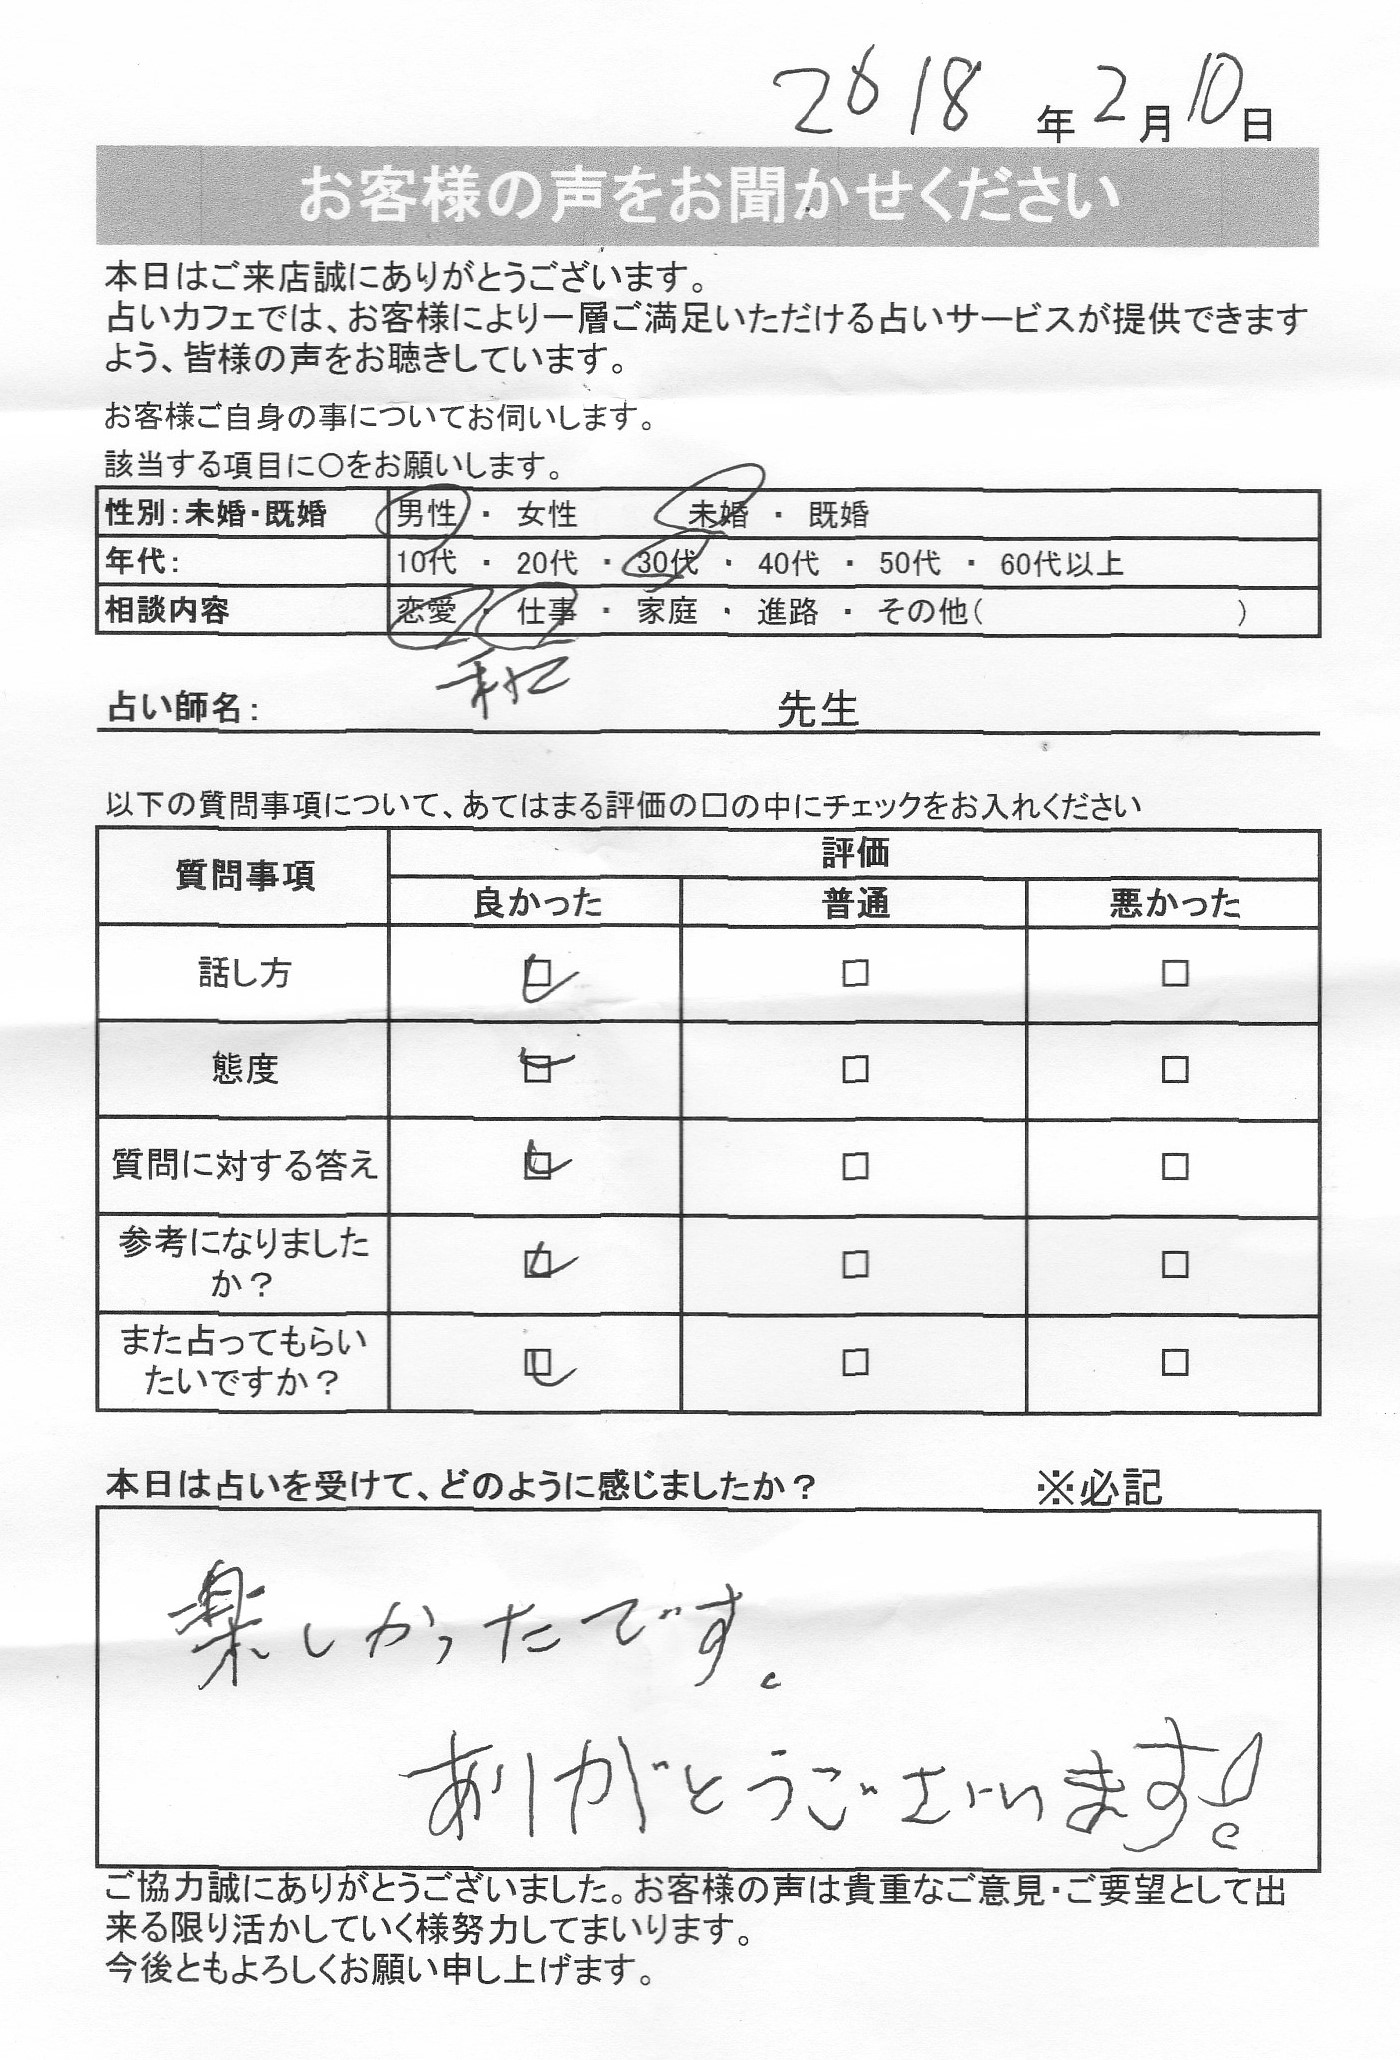 2018年2月10日
お客様の声をお聞かせください
本日はご来店誠にありがとうございます。
占いカフェでは、お客様により一層ご満足いただける占いサービスが提供できます
よう、皆様の声をお聴きしています。
お客様ご自身の事についてお伺いします。
該当する項目に〇をお願いします。
性別：未婚・既婚 男性 ・ 女性 未婚 ・ 既婚
年代： 10代 ・ 20代 ・ 30代 ・ 40代 ・ 50代 ・ 60代以上
相談内容 恋愛 ・ 仕事 ・ 家庭 ・ 進路 ・ その他（ ）
占い師名： 先生
以下の質問事項について、あてはまる評価の□の中にチェックをお入れください
質問事項 評価
良かった 普通 悪かった
話し方 ☑ □ □
態度 ☑ □ □
質問に対する答え ☑ □ □
参考になりました
か？ ☑ □ □
また占ってもらい
たいですか？ ☑ □ □
本日は占いを受けて、どのように感じましたか？ ※必記
楽しかったです。
ありがとうございます！
ご協力誠にありがとうございました。お客様の声は貴重なご意見・ご要望として出
来る限り活かしていく様努力してまいります。
今後ともよろしくお願い申し上げます。